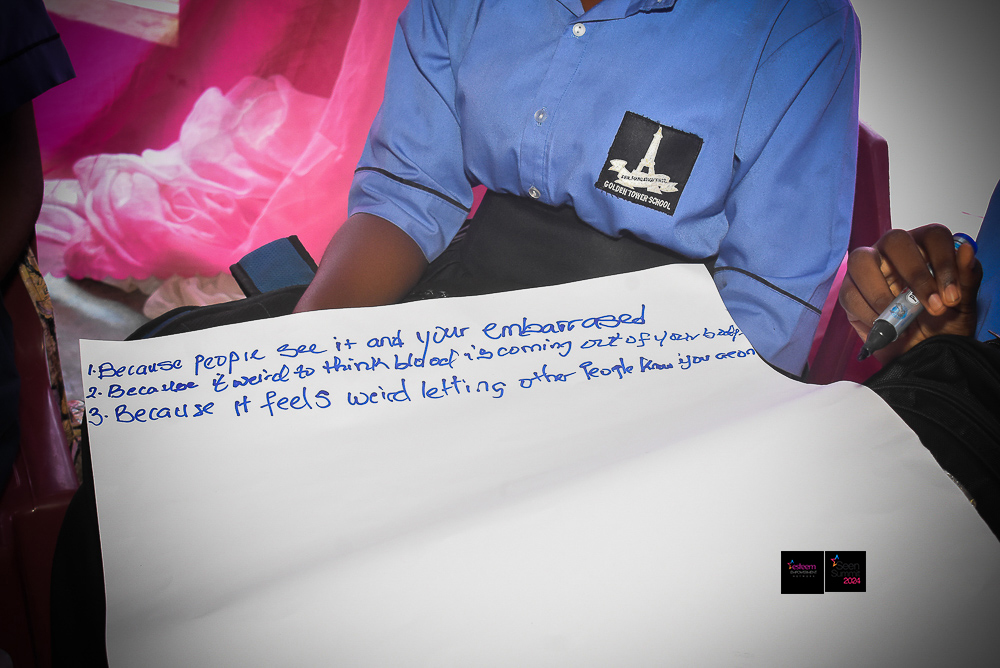 GOLDEN TOWER SCHOOL
1. Because people see it and your embarrased
2. Because it weird to think blood is coming out of your body
3. Because it feels weird letting other People know you are on
esteem
Seen
Summit
2024